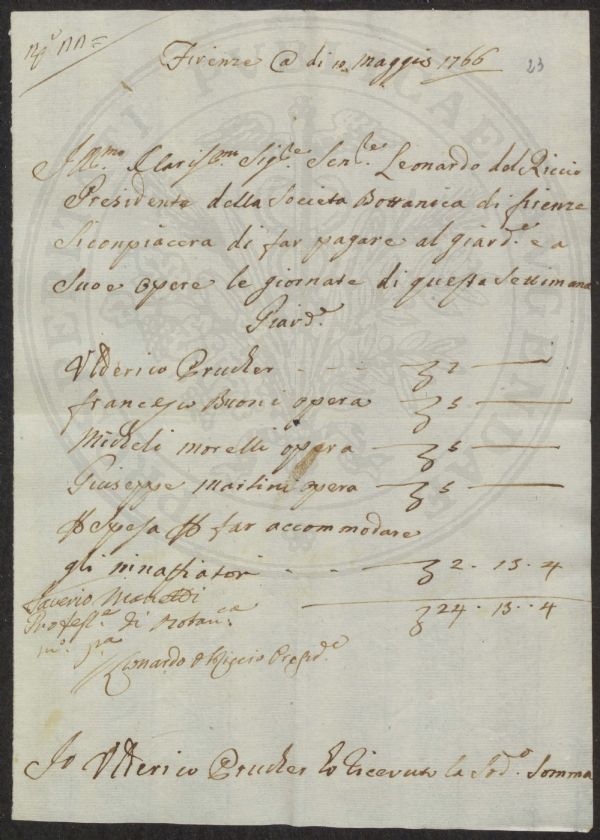 Firenze @ di 10 Maggio 1766
23
Ill.mo Clariss.mo Sig.re Sen.re Leonardo del Riccio
Presidente della Societa Bottanica di firenze
Siconpiacera di far pagare al giard.e e a
Suoe opere le giornate di questa Settimana
Giard.e
Ulderico Prucker
francesco Buoni opera 5
Micheli Morelli opera 5
Giuseppe Martini opera 5
Spesa far accommodare
gli innaffiatori 2 . 13 . 4
24 . 13 . 4
Saverio Manetti
Profess.e di Botan.ca
m.o p.a
Leonardo d Riccio Presid.e
Io Ulderico Prucker ho ricevuto la Sod.a Somma